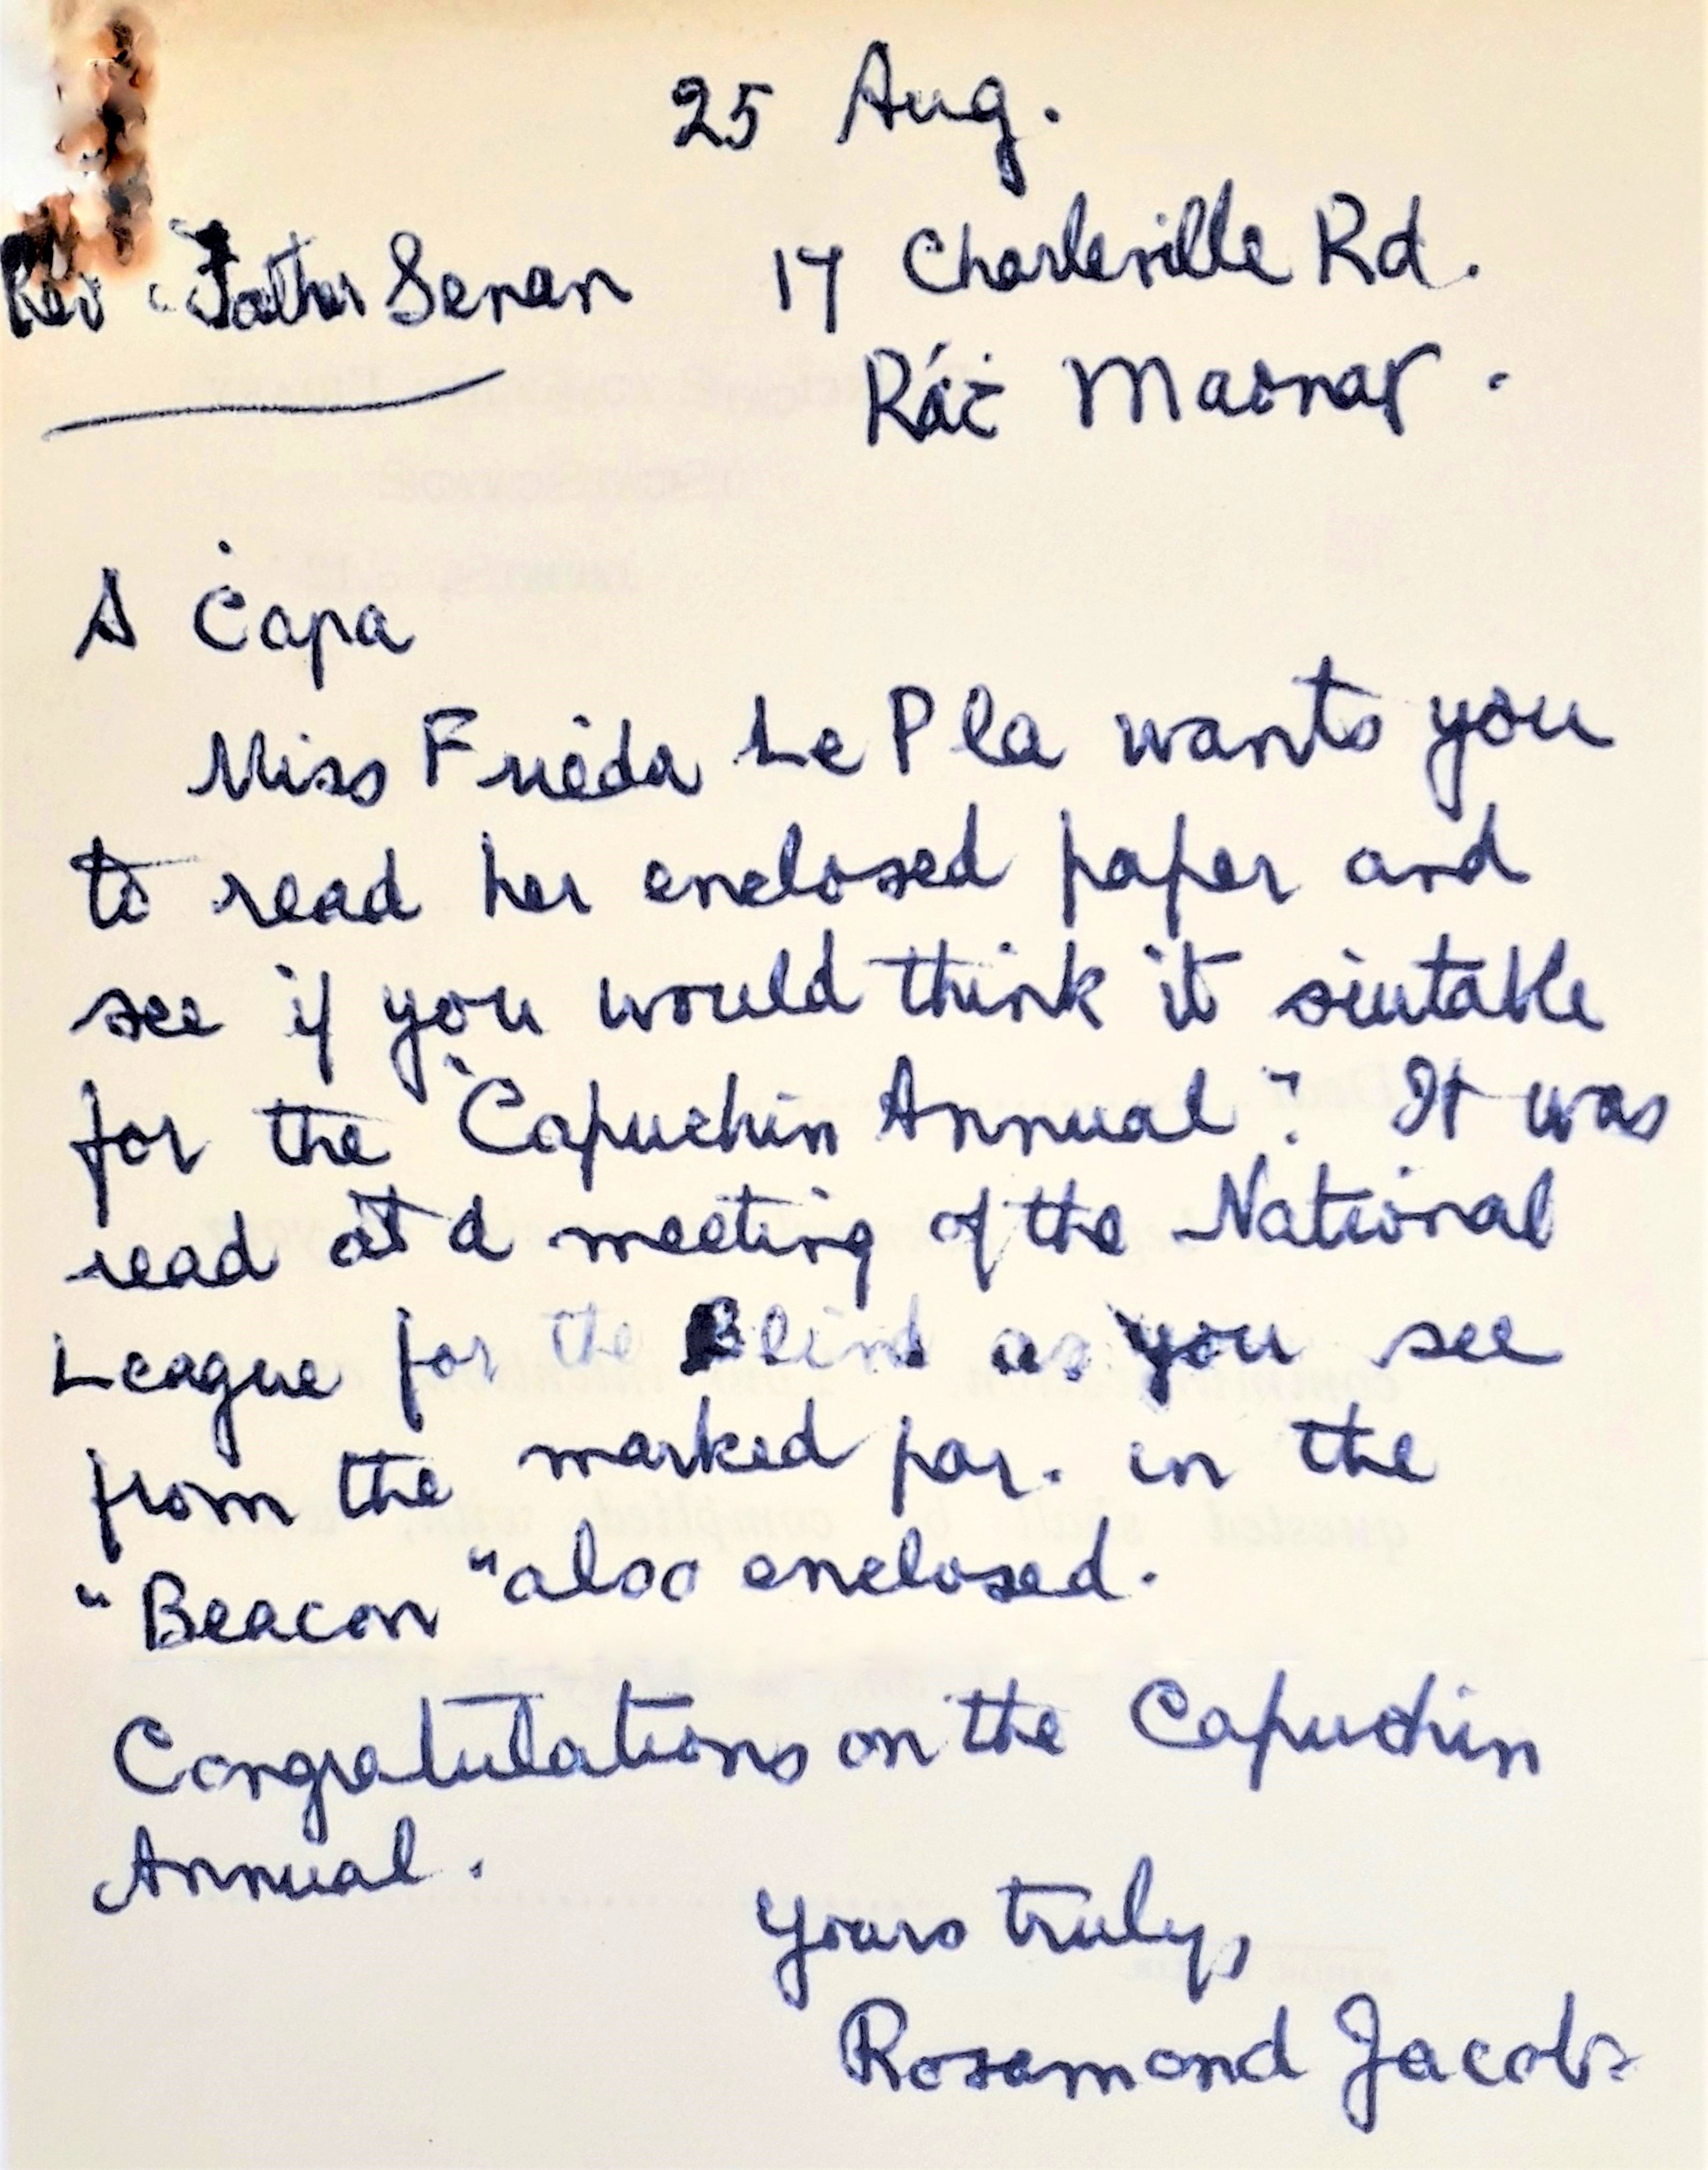 25 Aug.
Rev. Father Senan
17 Charleville Rd.
Ráṫ Maonaṡ.
A Ċara
Miss Frieda Le Pla wants you
to read her enclosed paper and
see if you would think it suitable
for the "Capuchin Annual". It was
read at a meeting of the National
League for the Blind as you see
from the marked par. in the
"Beacon" also enclosed.
Congratulations on the Capuchin
Annual.
Yours truly,
Rosamond Jacob